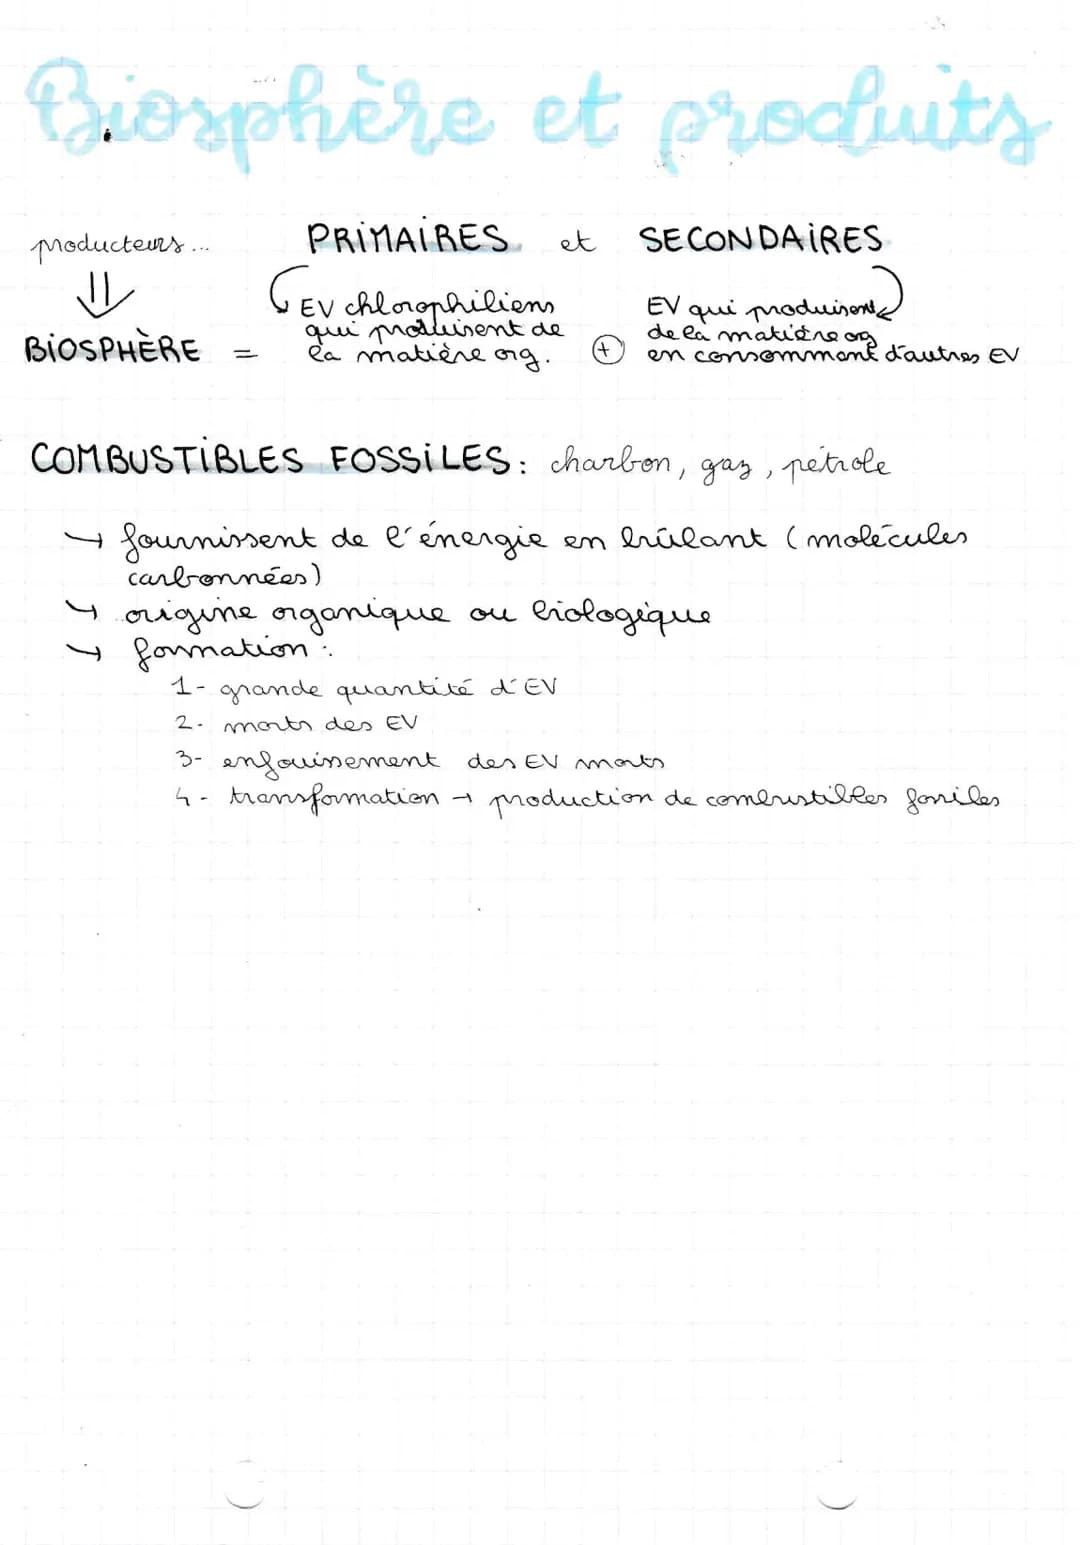 Biosphère et produits
producteurs... PRIMAIRES et SECONDAIRES
⇓
EV chlorophiliens
qui produisent de
la matière org.
EV qui produisent
de la matière org
en consommant d'autres EV
BIOSPHÈRE = +
COMBUSTIBLES FOSSILES : charbon, gaz, pétrole
→ fournissent de l'énergie en brûlant (molécules
carbonnées)
→ origine organique ou biologique
→ formation :
1- grande quantité d'EV
2- morts des EV
3- enfouissement des EV morts
4- transformation → production de combustibles fossiles